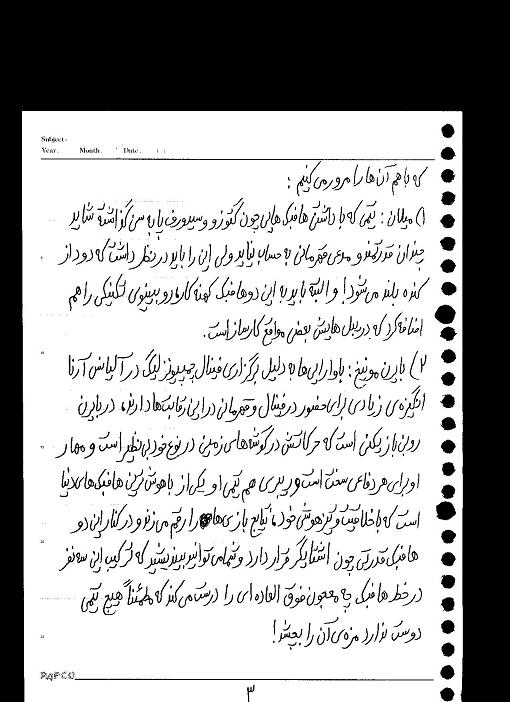 Subject:
Year. Month. Date. ( )
که با هم آن ها را مرور می کنیم :
۱) میلان : تیمی که با داشتن هافبک هایی چون گتوزو و سیدورف پا به سن گذاشته شاید
چندان قدرتمند و مدعی قهرمانی به حساب نیاید ولی این را باید در نظر داشت که دود از
کنده بلند می شود! و البته باید به این دو هافبک کهنه کار، روبینیوی تکنیکی را هم
اضافه کرد که دریبل هایش بعضی مواقع کارساز است.
۲) بایرن مونیخ : باواریایی ها به دلیل برگزاری فینال چمپیونز لیگ در آلیانس آرنا
انگیزه ی زیادی برای حضور در فینال و قهرمانی در این رقابت ها دارند، در بایرن
روبن بازیکنی است که حرکاتش در گوشه های زمین در نوع خود بی نظیر است و مهار
او برای هر دفاعی سخت است و ریبری هم تیمی او یکی از باهوش ترین هافبک های دنیا
است که با خلاقیت و تیزهوشی خود، نتایج بازی ها را رقم می زند و در کنار این دو
هافبک قدرتی چون اشتایگر قرار دارد و شما می توانید ببینید که ترکیب این سه نفر
در خط هافبک چه معجون فوق العاده ای را درست می کند که مطمئناً هیچ تیمی
دوست ندارد مزه ی آن را بچشد!
PAPCO
۳